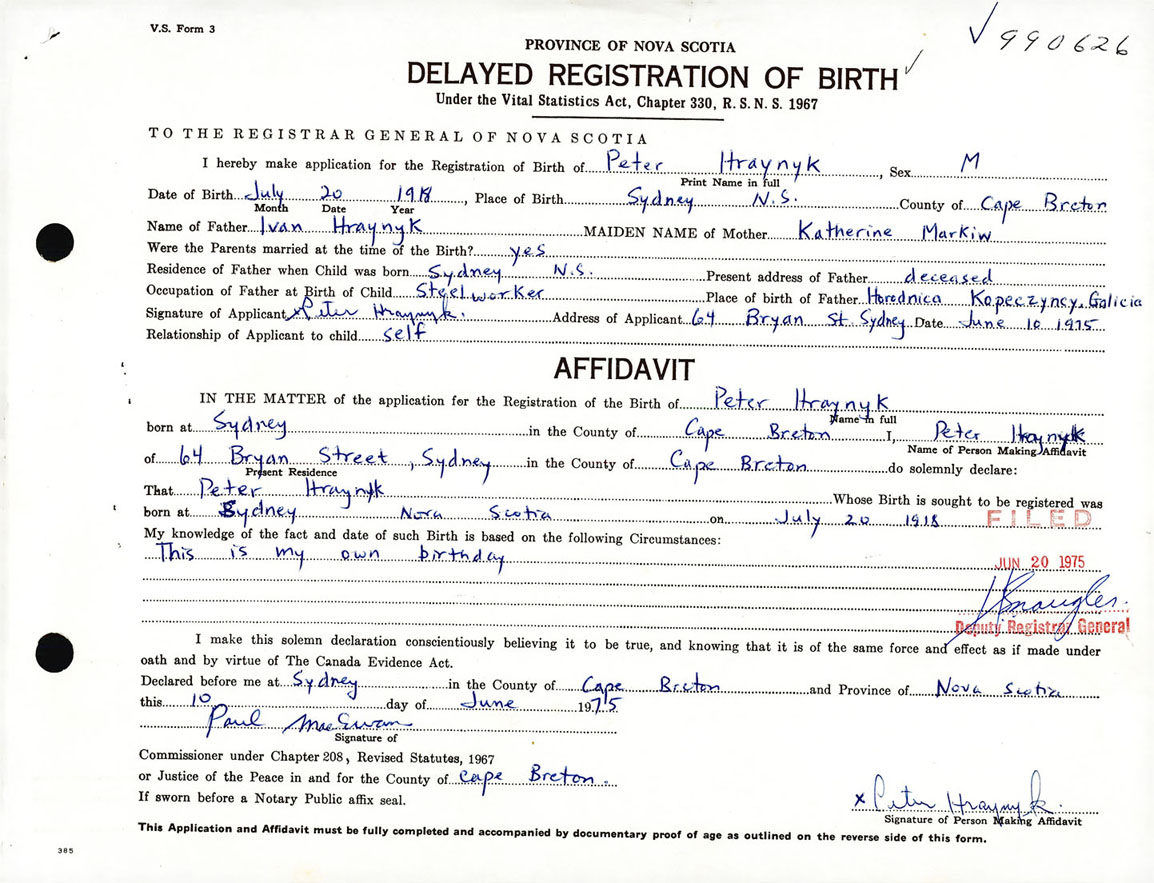 V.S. Form 3
990626
PROVINCE OF NOVA SCOTIA
DELAYED REGISTRATION OF BIRTH
Under the Vital Statistics Act, Chapter 330, R. S. N. S. 1967
TO THE REGISTRAR GENERAL OF NOVA SCOTIA
I hereby make application for the Registration of Birth of Peter Hraynyk, Sex M
Print Name in full
Date of Birth July 20 1918, Place of Birth Sydney N.S. County of Cape Breton
Month Date Year
Name of Father Ivan Hraynyk MAIDEN NAME of Mother Katherine Markiw
Were the Parents married at the time of the Birth? yes
Residence of Father when Child was born Sydney N.S. Present address of Father deceased
Occupation of Father at Birth of Child Steelworker Place of birth of Father Horodnica Kopeczyncy, Galicia
Signature of Applicant x Peter Hraynyk. Address of Applicant 64 Bryan St. Sydney Date June 10 1975
Relationship of Applicant to child self
AFFIDAVIT
IN THE MATTER of the application for the Registration of the Birth of Peter Hraynyk
Name in full
born at Sydney in the County of Cape Breton I, Peter Hraynyk
Name of Person Making Affidavit
of 64 Bryan Street, Sydney in the County of Cape Breton do solemnly declare:
Present Residence
That Peter Hraynyk Whose Birth is sought to be registered was
born at Sydney Nova Scotia on July 20 1918
FILED
My knowledge of the fact and date of such Birth is based on the following Circumstances:
This is my own birthday
JUN 20 1975
Deputy Registrar General
I make this solemn declaration conscientiously believing it to be true, and knowing that it is of the same force and effect as if made under
oath and by virtue of The Canada Evidence Act.
Declared before me at Sydney in the County of Cape Breton and Province of Nova Scotia
this 10 day of June 1975
Paul MacEwan
Signature of
Commissioner under Chapter 208, Revised Statutes, 1967
or Justice of the Peace in and for the County of Cape Breton.
If sworn before a Notary Public affix seal.
x Peter Hraynyk.
Signature of Person Making Affidavit
This Application and Affidavit must be fully completed and accompanied by documentary proof of age as outlined on the reverse side of this form.
385